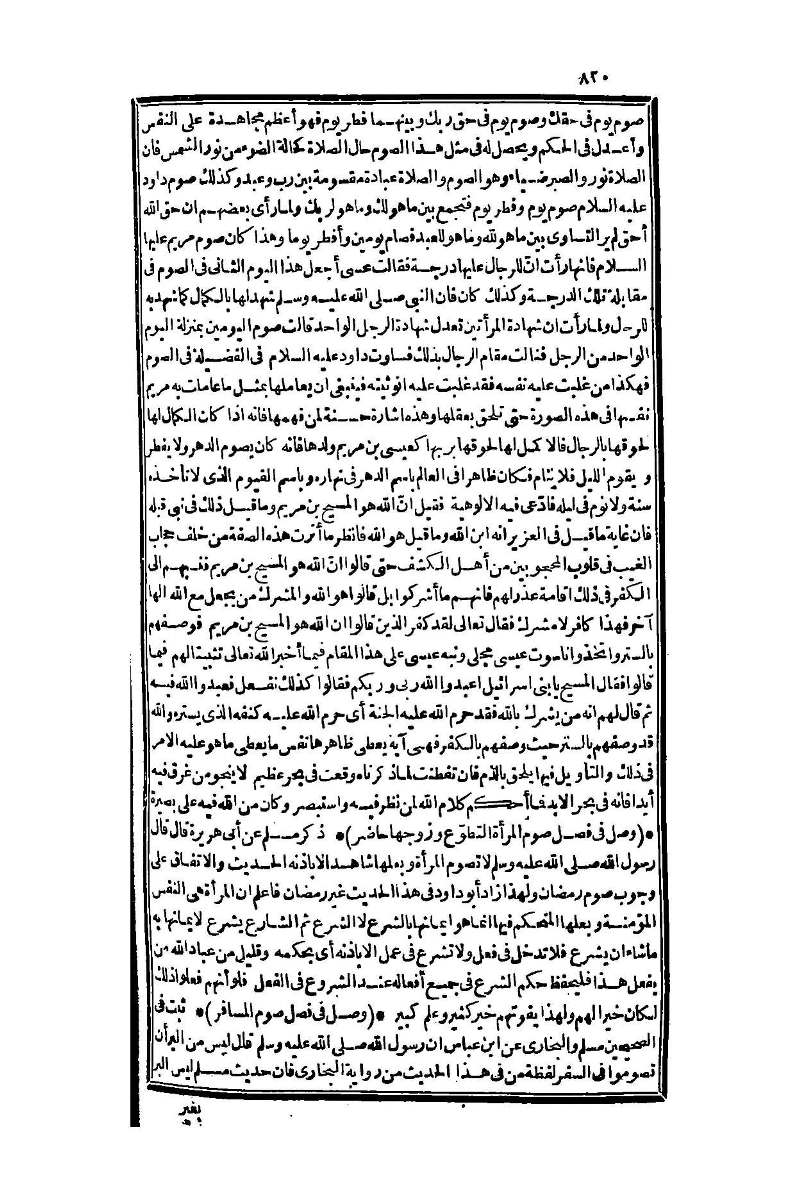 ٨٢٠
صوم يوم فى حقك وصوم يوم فى حق ربك وبينهما فطر يوم فهو أعظم مجاهدة على النفس
وأعدل فى الحكم ويحصل له فى مثل هذا الصوم حال الصلاة كحالة الضوء من نور الشمس فان
الصلاة نور والصبر ضياء وهو الصوم والصلاة عبادة مقسومة بين رب وعبد وكذلك صوم داود
عليه السلام صوم يوم وفطر يوم فتجمع بين ماهولك وماهو لربك ولما رأى بعضهم ان حق الله
أحق لم ير التساوى بين ماهو لله وماهو للعبد فصام يومين وأفطر يوما وهذا كان صوم مريم عليها
السلام فانها رأت ان للرجال عليها درجة فقالت عسى أجعل هذا اليوم الثانى فى الصوم فى
مقابلة تلك الدرجة وكذلك كان فان النبى صلى الله عليه وسلم شهد لها بالكمال كما شهد به
للرجال ولما رأت ان شهادة المرأتين تعدل شهادة الرجل الواحد قالت صوم اليومين بمنزلة اليوم
الواحد من الرجل فنالت مقام الرجال بذلك فساوت داود عليه السلام فى الفضيلة فى الصوم
فهكذا من غلبت عليه نفسه فقد غلبت عليه انوثيته فينبغى ان يعاملها بمثل ماعاملت به مريم
نفسها فى هذه الصورة حتى تلحق بعقلها وهذه اشارة حسنة لمن فهمها فانه اذا كان الكمال لها
لحوقها بالرجال فالاكمل لها لحوقها بربها كعيسى بن مريم ولدها فانه كان يصوم الدهر ولا يفطر
ويقوم الليل فلا ينام فكان ظاهرا فى العالم باسم الدهر فى نهاره وباسم القيوم الذى لا تأخذه
سنة ولا نوم فى ليله فادعى فيه الالوهية فقيل ان الله هو المسيح بن مريم وماقيل ذلك فى نبى قبله
فان غاية ماقيل فى العزير انه ابن الله وماقيل هو الله فانظر ما أثرت هذه الصفة من خلف حجاب
الغيب فى قلوب المحجوبين من أهل الكشف حتى قالوا ان الله هو المسيح بن مريم فنسبهم الى
الكفر فى ذلك اقامة عذر لهم فانهم ماأشركوا بل قالوا هو الله والمشرك من يجعل مع الله الها
آخر فهذا كافر لا مشرك فقال تعالى لقد كفر الذين قالوا ان الله هو المسيح بن مريم فوصفهم
بالستر واتخذوا ناسوت عيسى مجلى ونبه عيسى على هذا المقام فيما أخبر الله تعالى تثبيتا لهم فيما
قالوا فقال المسيح يابنى اسرائيل اعبدوا الله ربى وربكم فقالوا كذلك نفعل فعبدوا الله فيه
ثم قال لهم انه من يشرك بالله فقد حرم الله عليه الجنة أى حرم الله عليه كنفه الذى يستره والله
قد وصفهم بالستر حيث وصفهم بالكفر فهى آية يعطى ظاهرها نفس مايعطى ماهو عليه الامر
فى ذلك والتأويل فيها يلحق بالذم فان تفطنت لماذكرناه وقعت فى بحر عظيم لا ينجو من غرق فيه
أبدا فانه فى بحر الابد فما أحكم كلام الله لمن نظر فيه واستبصر وكان من الله فيه على بصيرة
*(وصل فى فصل صوم المرأة التطوع وزوجها حاضر)* ذكر مسلم عن أبى هريرة قال قال
رسول الله صلى الله عليه وسلم لا تصوم المرأة وبعلها شاهد الا باذنه الحديث والاتفاق على
وجوب صوم رمضان ولهذا زاد أبو داود فى هذا الحديث غير رمضان فاعلم ان المرأة هى النفس
المؤمنة وبعلها المتحكم فيها انما هو ايمانها بالشرع لا الشرع ثم الشارع يشرع لايمانها به
ماشاء ان يشرع فلا تدخل فى فعل ولا تشرع فى عمل الا باذنه أى بحكمه وقليل من عباد الله من
يفعل هذا فليحفظ حكم الشرع فى جميع أفعاله عند الشروع فى الفعل فلو أنهم فعلوا ذلك
لكان خيرا لهم ولهذا يفوتهم خير كثير وعلم كبير *(وصل فى فصل صوم المسافر)* ثبت فى
الصحيحين مسلم والبخارى عن ابن عباس ان رسول الله صلى الله عليه وسلم قال ليس من البر أن
تصوموا فى السفر لفظة من فى هذا الحديث من رواية البخارى فان حديث مسلم ليس البر
بغير